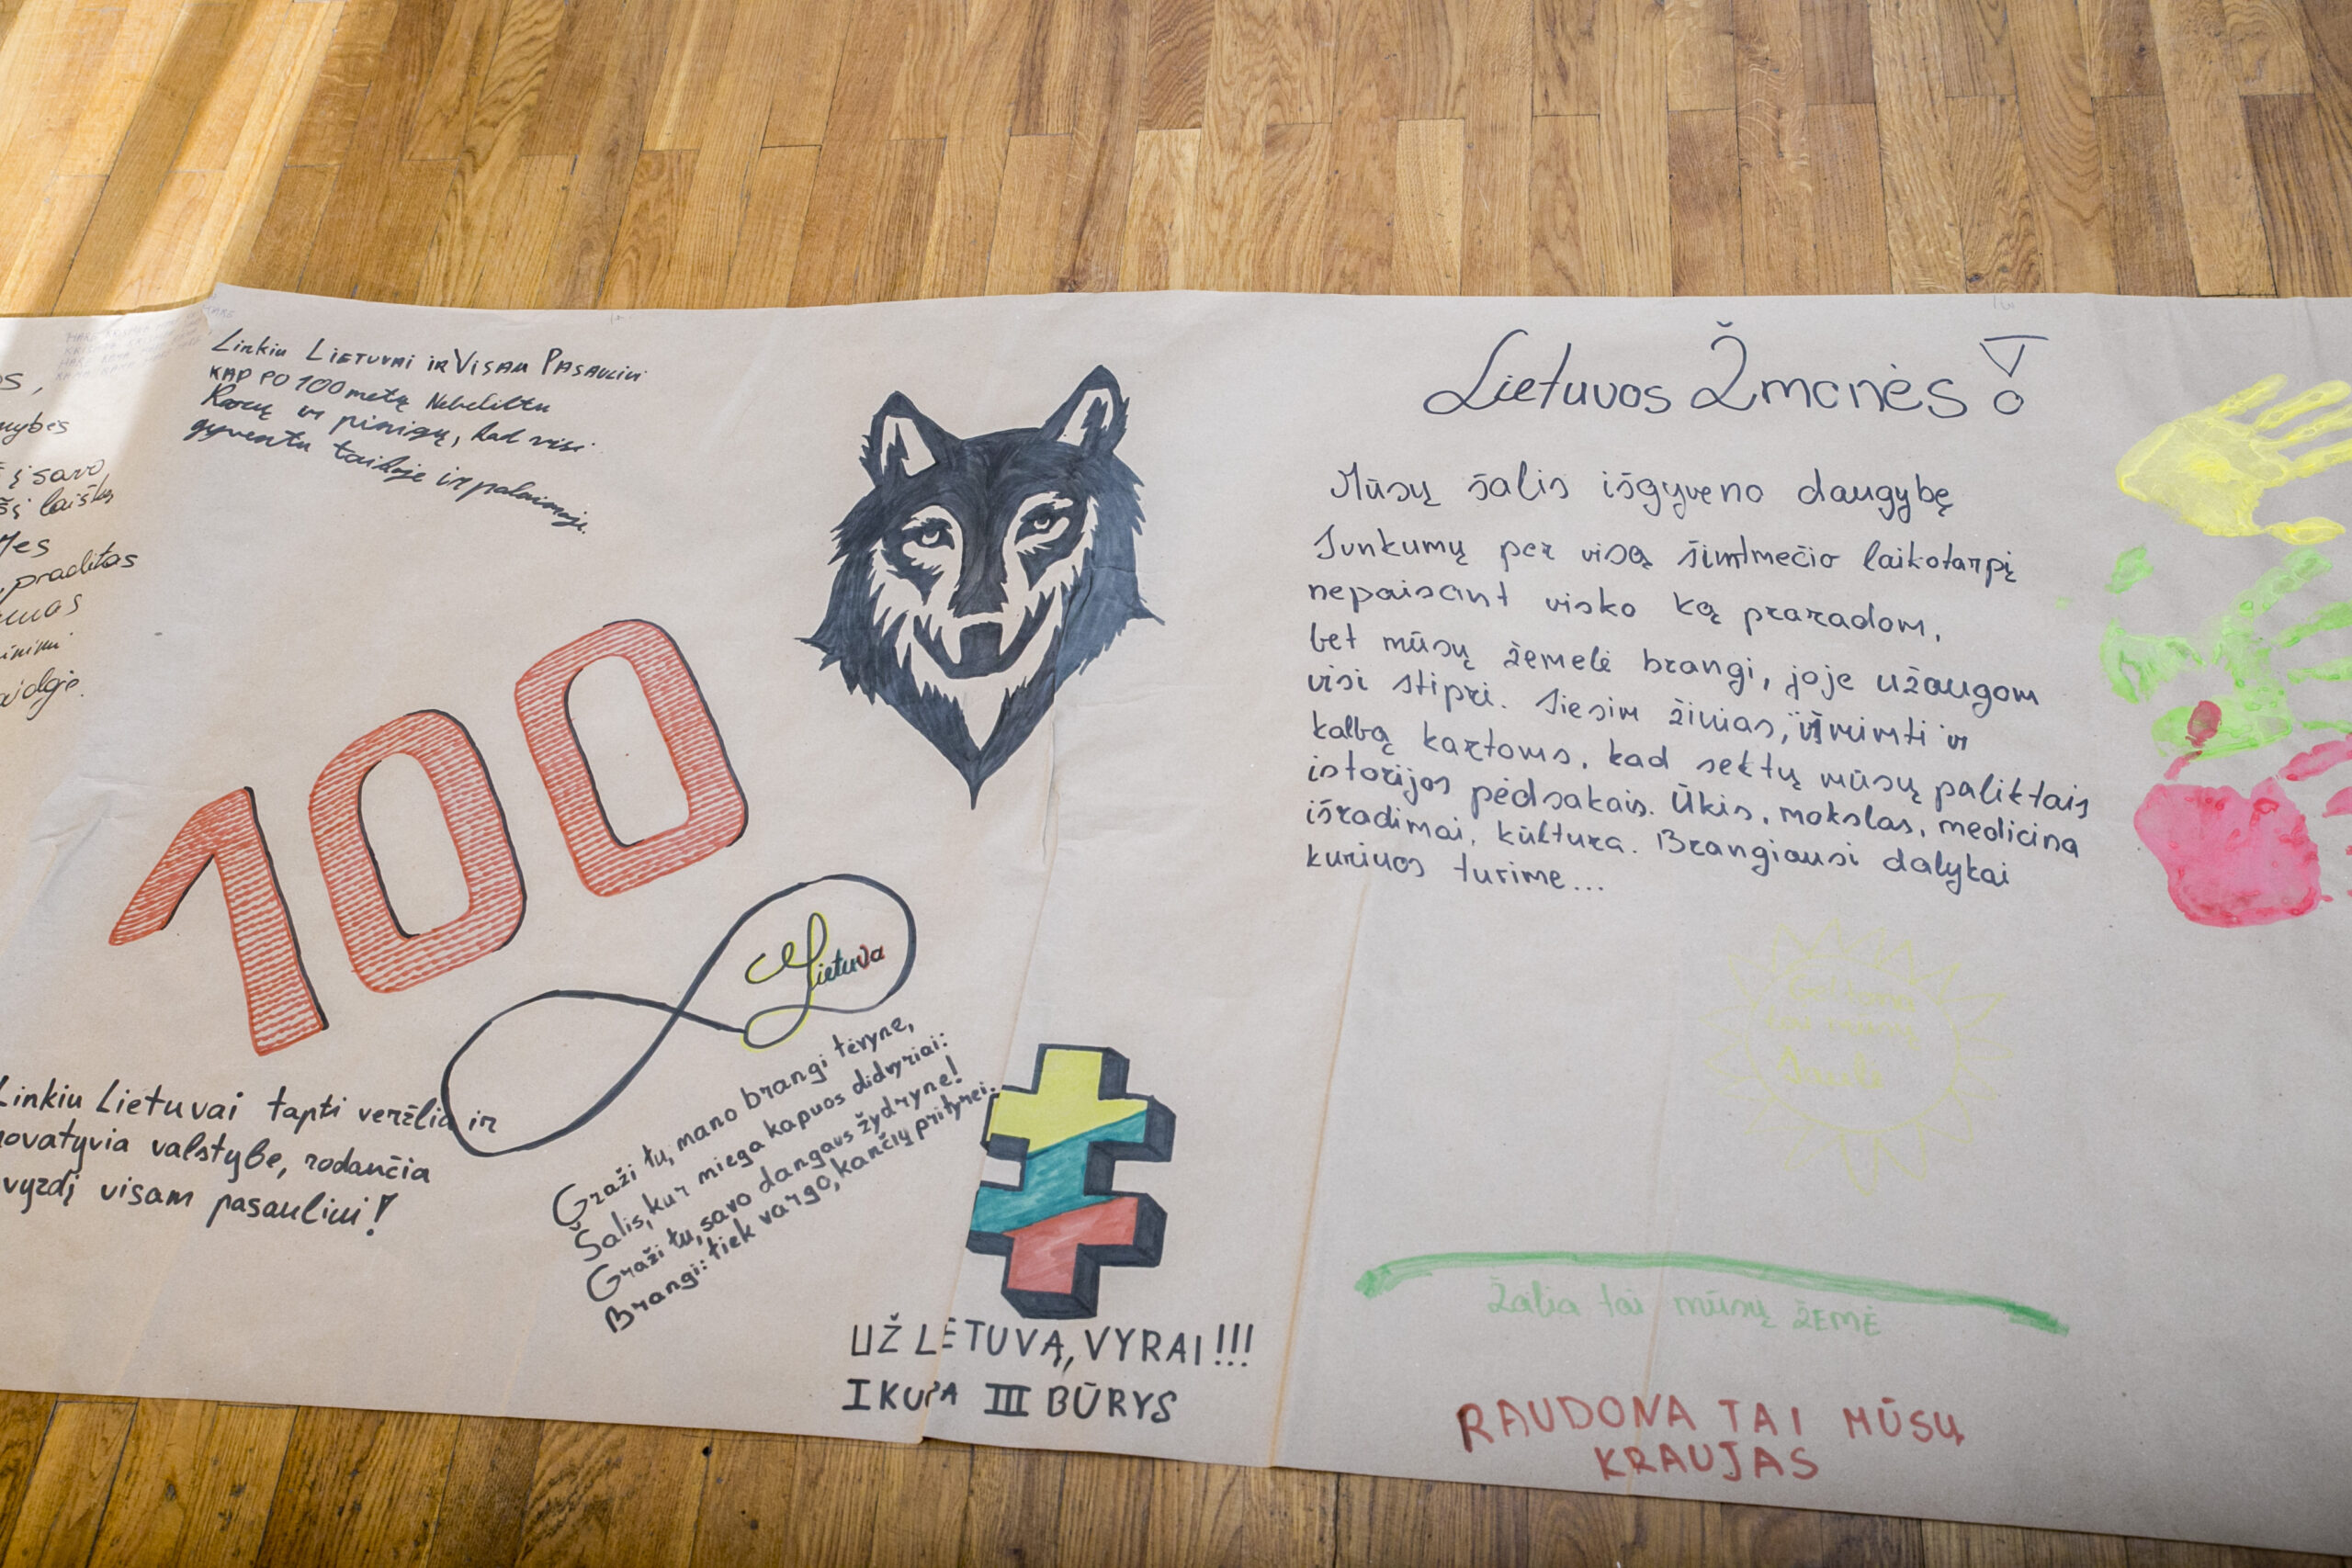 os,
nybės
į savo
šį laišką
Mes
praeitas
aidoje.
Linkiu LIETUVAI IR VISAM PASAULIUI
KAD PO 100 metų Nebeliktu
Karų ir pinigų, kad visi
gyventu taikoje ir palaimoje.
100
Lietuva
Linkiu Lietuvai tapti veržlia ir
novatyvia valstybe, rodančia
vyzdį visam pasauliui!
Graži tu, mano brangi tėvyne,
Šalis, kur miega kapuos didvyriai:
Graži tu, savo dangaus žydryne!
Brangi: tiek vargo, kančių prityrei.
UŽ LETUVĄ, VYRAI!!!
I KUOPA III BŪRYS
Lietuvos Žmonės!
Mūsų šalis išgyveno daugybę
sunkumų per visą šimtmečio laikotarpį
nepaisant visko ką praradom,
bet mūsų žemelė brangi, joje užaugom
visi stipri. Siesim žinias, išmimti ir
kalbą kartoms, kad sektų mūsų paliktais
istorijos pėdsakais. Ūkis, mokslas, medicina
išradimai, kūltura. Brangiausi dalykai
kuriuos turime...
Geltona
tai mūsų
Saulė
Žalia tai mūsų ŽEMĖ
RAUDONA TAI MŪSŲ
KRAUJAS